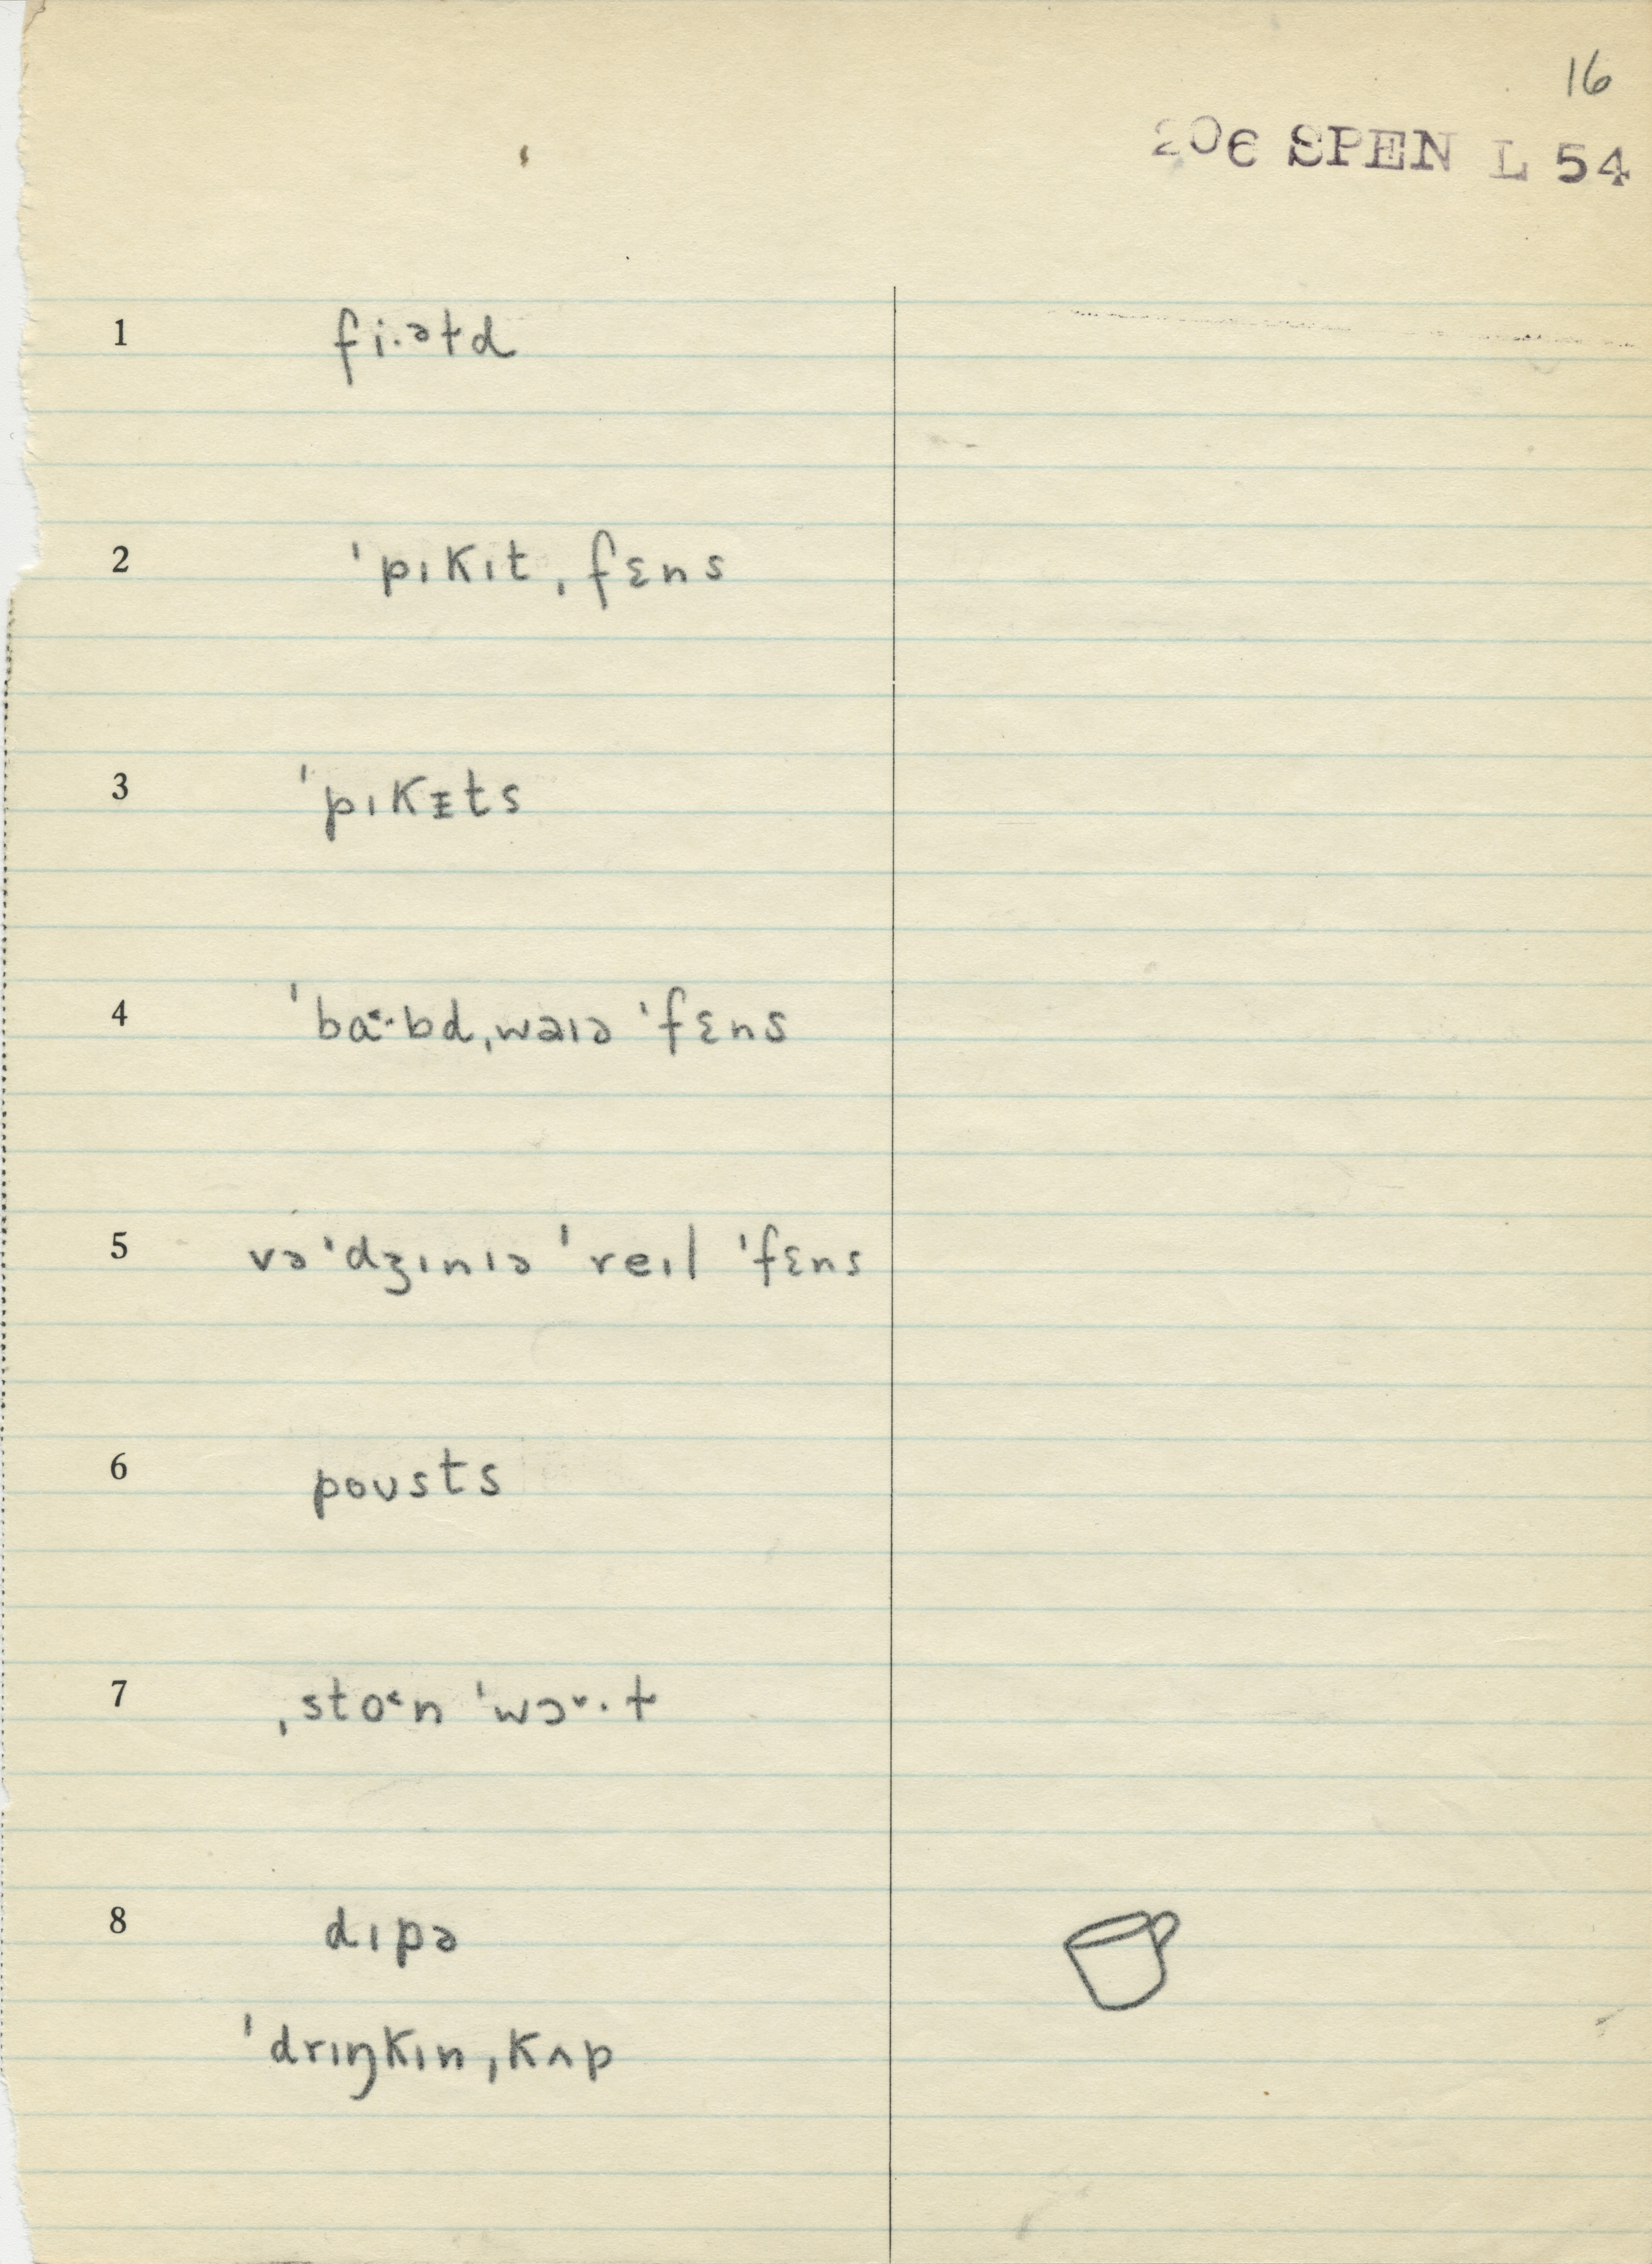 16
206 SPEN L 54
1 fi·əɫd
2 ˈpɪkɪt ˌfɛns
3 ˈpɪkᵻts
4 ˈbɑ˂·bd ˌwaɪə ˈfɛns
5 vəˈdʒɪnɪə ˈreɪl ˈfɛns
6 poʊsts
7 ˌsto˂n ˈwɔ˅·ɫ
8 dɪpə
ˈdrɪŋkɪn ˌkʌp